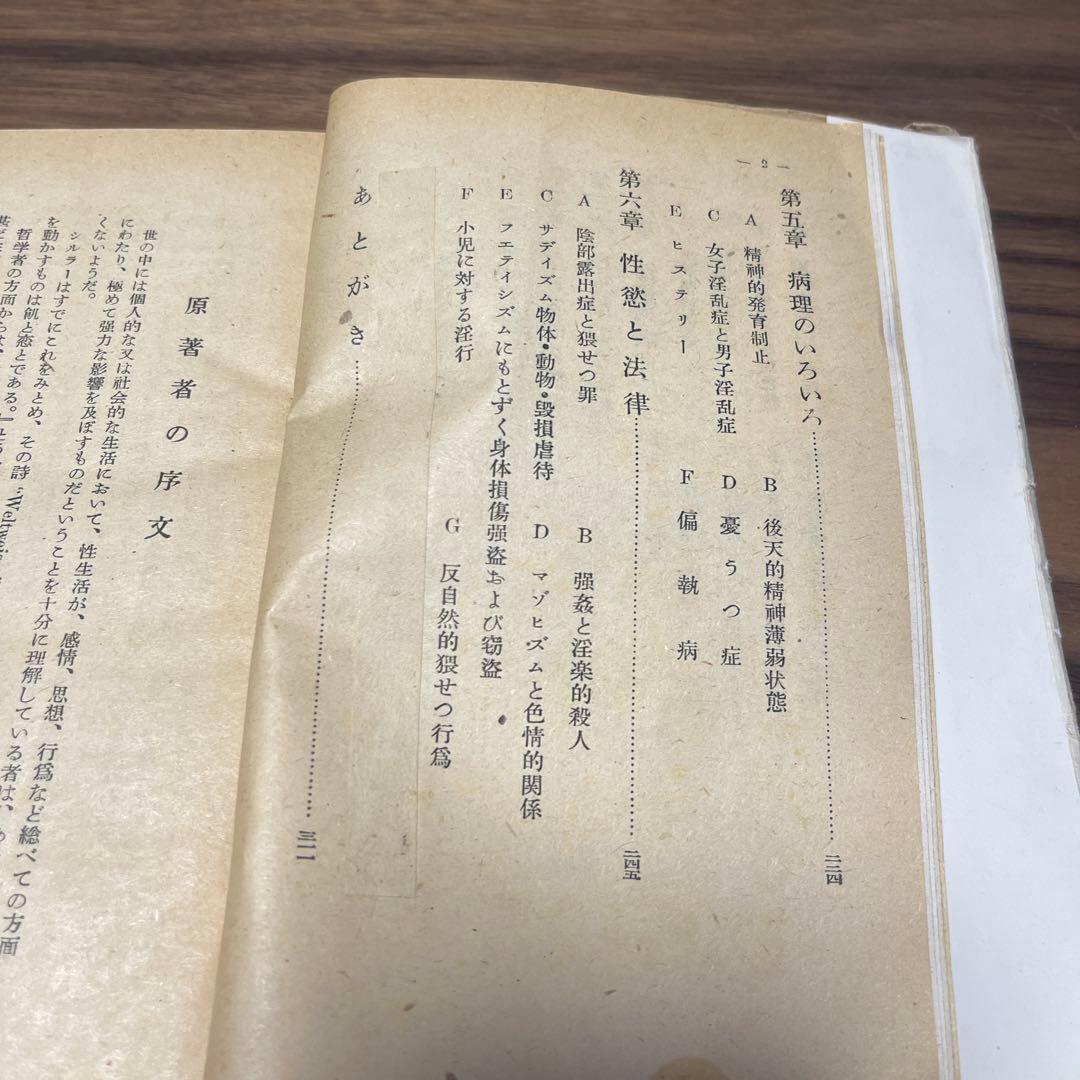 ― 2 ―
第五章 病理のいろいろ……二三四
A 精神的発育制止 B 後天的精神薄弱状態
C 女子淫乱症と男子淫乱症 D 憂うつ症
E ヒステリー F 偏執病
第六章 性慾と法律……二四五
A 陰部露出症と猥せつ罪 B 强姦と淫楽的殺人
C サディズム物体・動物・毀損虐待 D マゾヒズムと色情的関係
E フエティシズムにもとずく身体損傷强盗および窃盗
F 小児に対する淫行 G 反自然的猥せつ行爲
あとがき……三一一
原著者の序文
世の中には個人的な又は社会的な生活において、性生活が、感情、思想、行爲など総べての方面
にわたり、極めて强力な影響を及ぼすものだということを十分に理解している者は、
くないようだ。
シルラーはすでにこれをみとめ、その詩 „Weltwei
を動かすものは飢と恋とである。
哲学者の方面からは、